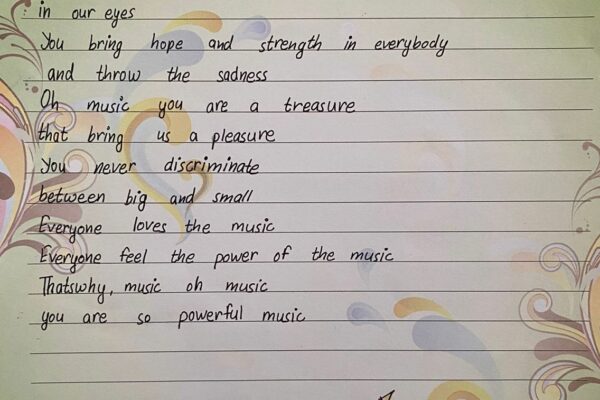 in our eyes
You bring hope and strength in everybody
and throw the sadness
Oh music you are a treasure
that bring us a pleasure
You never discriminate
between big and small
Everyone loves the music
Everyone feel the power of the music
Thatswhy, music oh music
you are so powerful music